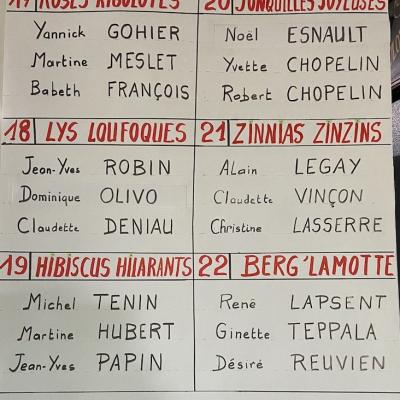 17 ROSES RIGOLOTES
Yannick GOHIER
Martine MESLET
Babeth FRANÇOIS
20 JONQUILLES JOYEUSES
Noël ESNAULT
Yvette CHOPELIN
Robert CHOPELIN
18 LYS LOUFOQUES
Jean-Yves ROBIN
Dominique OLIVO
Claudette DENIAU
21 ZINNIAS ZINZINS
Alain LEGAY
Claudette VINÇON
Christine LASSERRE
19 HIBISCUS HILARANTS
Michel TENIN
Martine HUBERT
Jean-Yves PAPIN
22 BERG'LAMOTTE
René LAPSENT
Ginette TEPPALA
Désiré REUVIEN